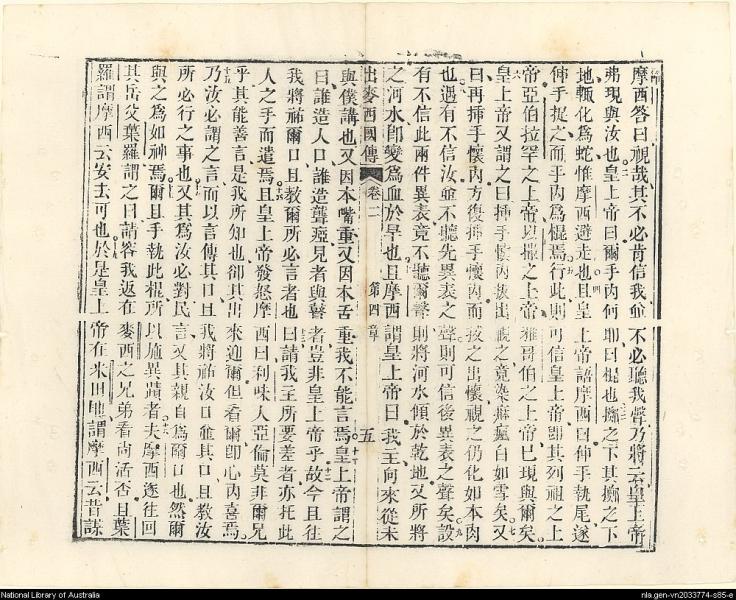 摩西答曰視哉其不必肯信我並不必聽我聲乃將云皇上帝
弗現與汝也皇上帝曰爾手內何耶曰棍也擲之下其擲之下
地輒化為蛇惟摩西避走也且皇上帝語摩西曰伸手執尾遂
伸手捉之而手內為棍焉行此則可信皇上帝卽其列祖之上
帝亞伯拉罕之上帝以撒之上帝雅哥伯之上帝已現與爾矣
皇上帝又謂之曰挿手懷內拔出視之竟染癩瘋白如雪矣又
曰再挿手懷內方復挿手懷內而拔之出懷視之仍化如本肉
也遇有不信汝並不聽先異表之聲則可信後異表之聲矣設
有不信此兩件異表竟不聽爾聲則將河水傾於乾地又所將
之河水卽變為血於旱也且摩西謂皇上帝曰我主向來從未
出麥西國傳 卷二 第四章 五
與僕講也又因本嘴重又因本舌重我不能言焉皇上帝謂之
曰誰造人口誰造聾瘂見者與瞽者豈非皇上帝乎故今且往
我將祐爾口且教爾所必言者也曰請我主所要差者亦托此
人之手而遣焉且皇上帝發怒摩西曰利味人亞倫莫非爾兄
乎其能善言是我所知也卻其出來迎爾但看爾卽心內喜焉
乃汝必謂之言而以言傳其口且我將祐汝口並其口且教汝
所必行之事也又其為汝必對民言又其親自為爾口也然爾
與之為如神焉爾且手執此棍所以施異蹟者夫摩西遂往回
其岳父葉羅謂之曰請容我返在麥西之兄弟看尚活否且葉
羅謂摩西云安去可也於是皇上帝在米田地謂摩西云昔謀
National Library of Australia
nla.gen-vn2033774-s85-e